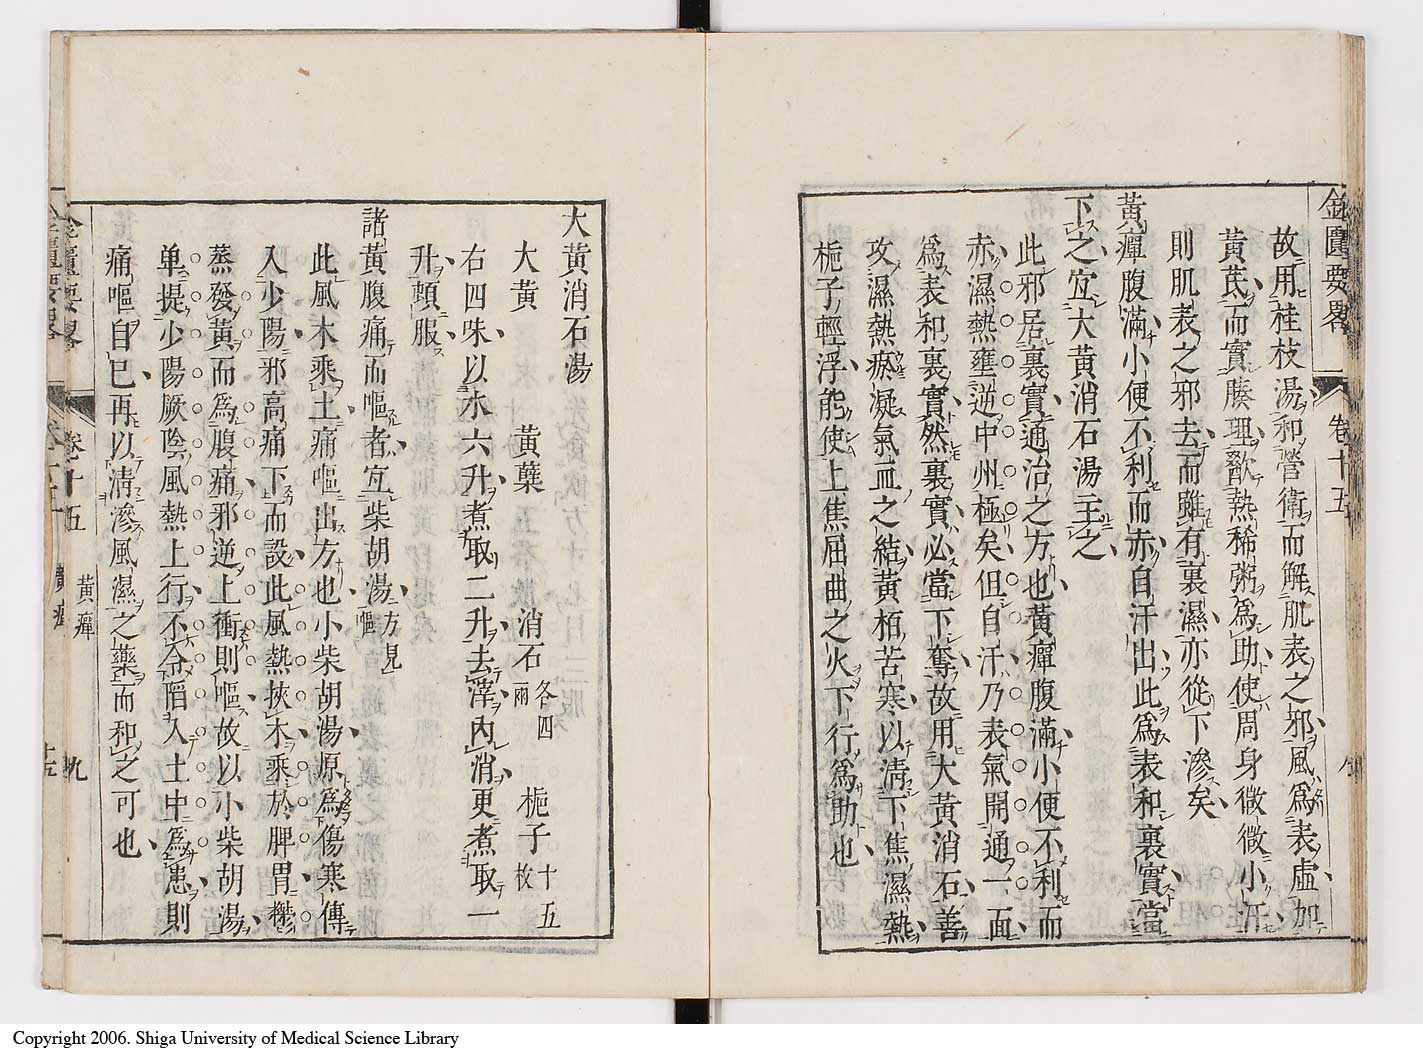 金匱要畧
卷十五
故用桂枝湯和營衛而解肌表之邪風爲表虛加
黃茋而實腠理歠熱稀粥爲助使周身微微小汗
則肌表之邪去而雖有裏濕亦從下滲矣
黃癉腹滿小便不利而赤自汗出此爲表和裏實當
下之宜大黃消石湯主之
此邪居裏實通治之方也黃癉腹滿小便不利而
赤濕熱壅逆中州極矣但自汗乃表氣開通一面
爲表和裏實然裏實必當下奪故用大黃消石善
攻濕熱瘀凝氣血之結黃栢苦寒以清下焦濕熱
梔子輕浮能使上焦屈曲之火下行爲助也
大黃消石湯
大黃 黃蘗 消石各四兩 梔子十五枚
右四味以水六升煮取二升去滓內消更煮取一
升頓服
諸黃腹痛而嘔者宜柴胡湯方見嘔
此風木乘土痛嘔出方也小柴胡湯原爲傷寒傳
入少陽邪高痛下而設此風熱挾木乘於脾胃欝
蒸發黃而爲腹痛邪逆上衝則嘔故以小柴胡湯
单提少陽厥陰風熱上行不令陷入土中爲患則
痛嘔自已再以清滲風濕之藥而和之可也
金匱要畧
卷十五
黃癉
九